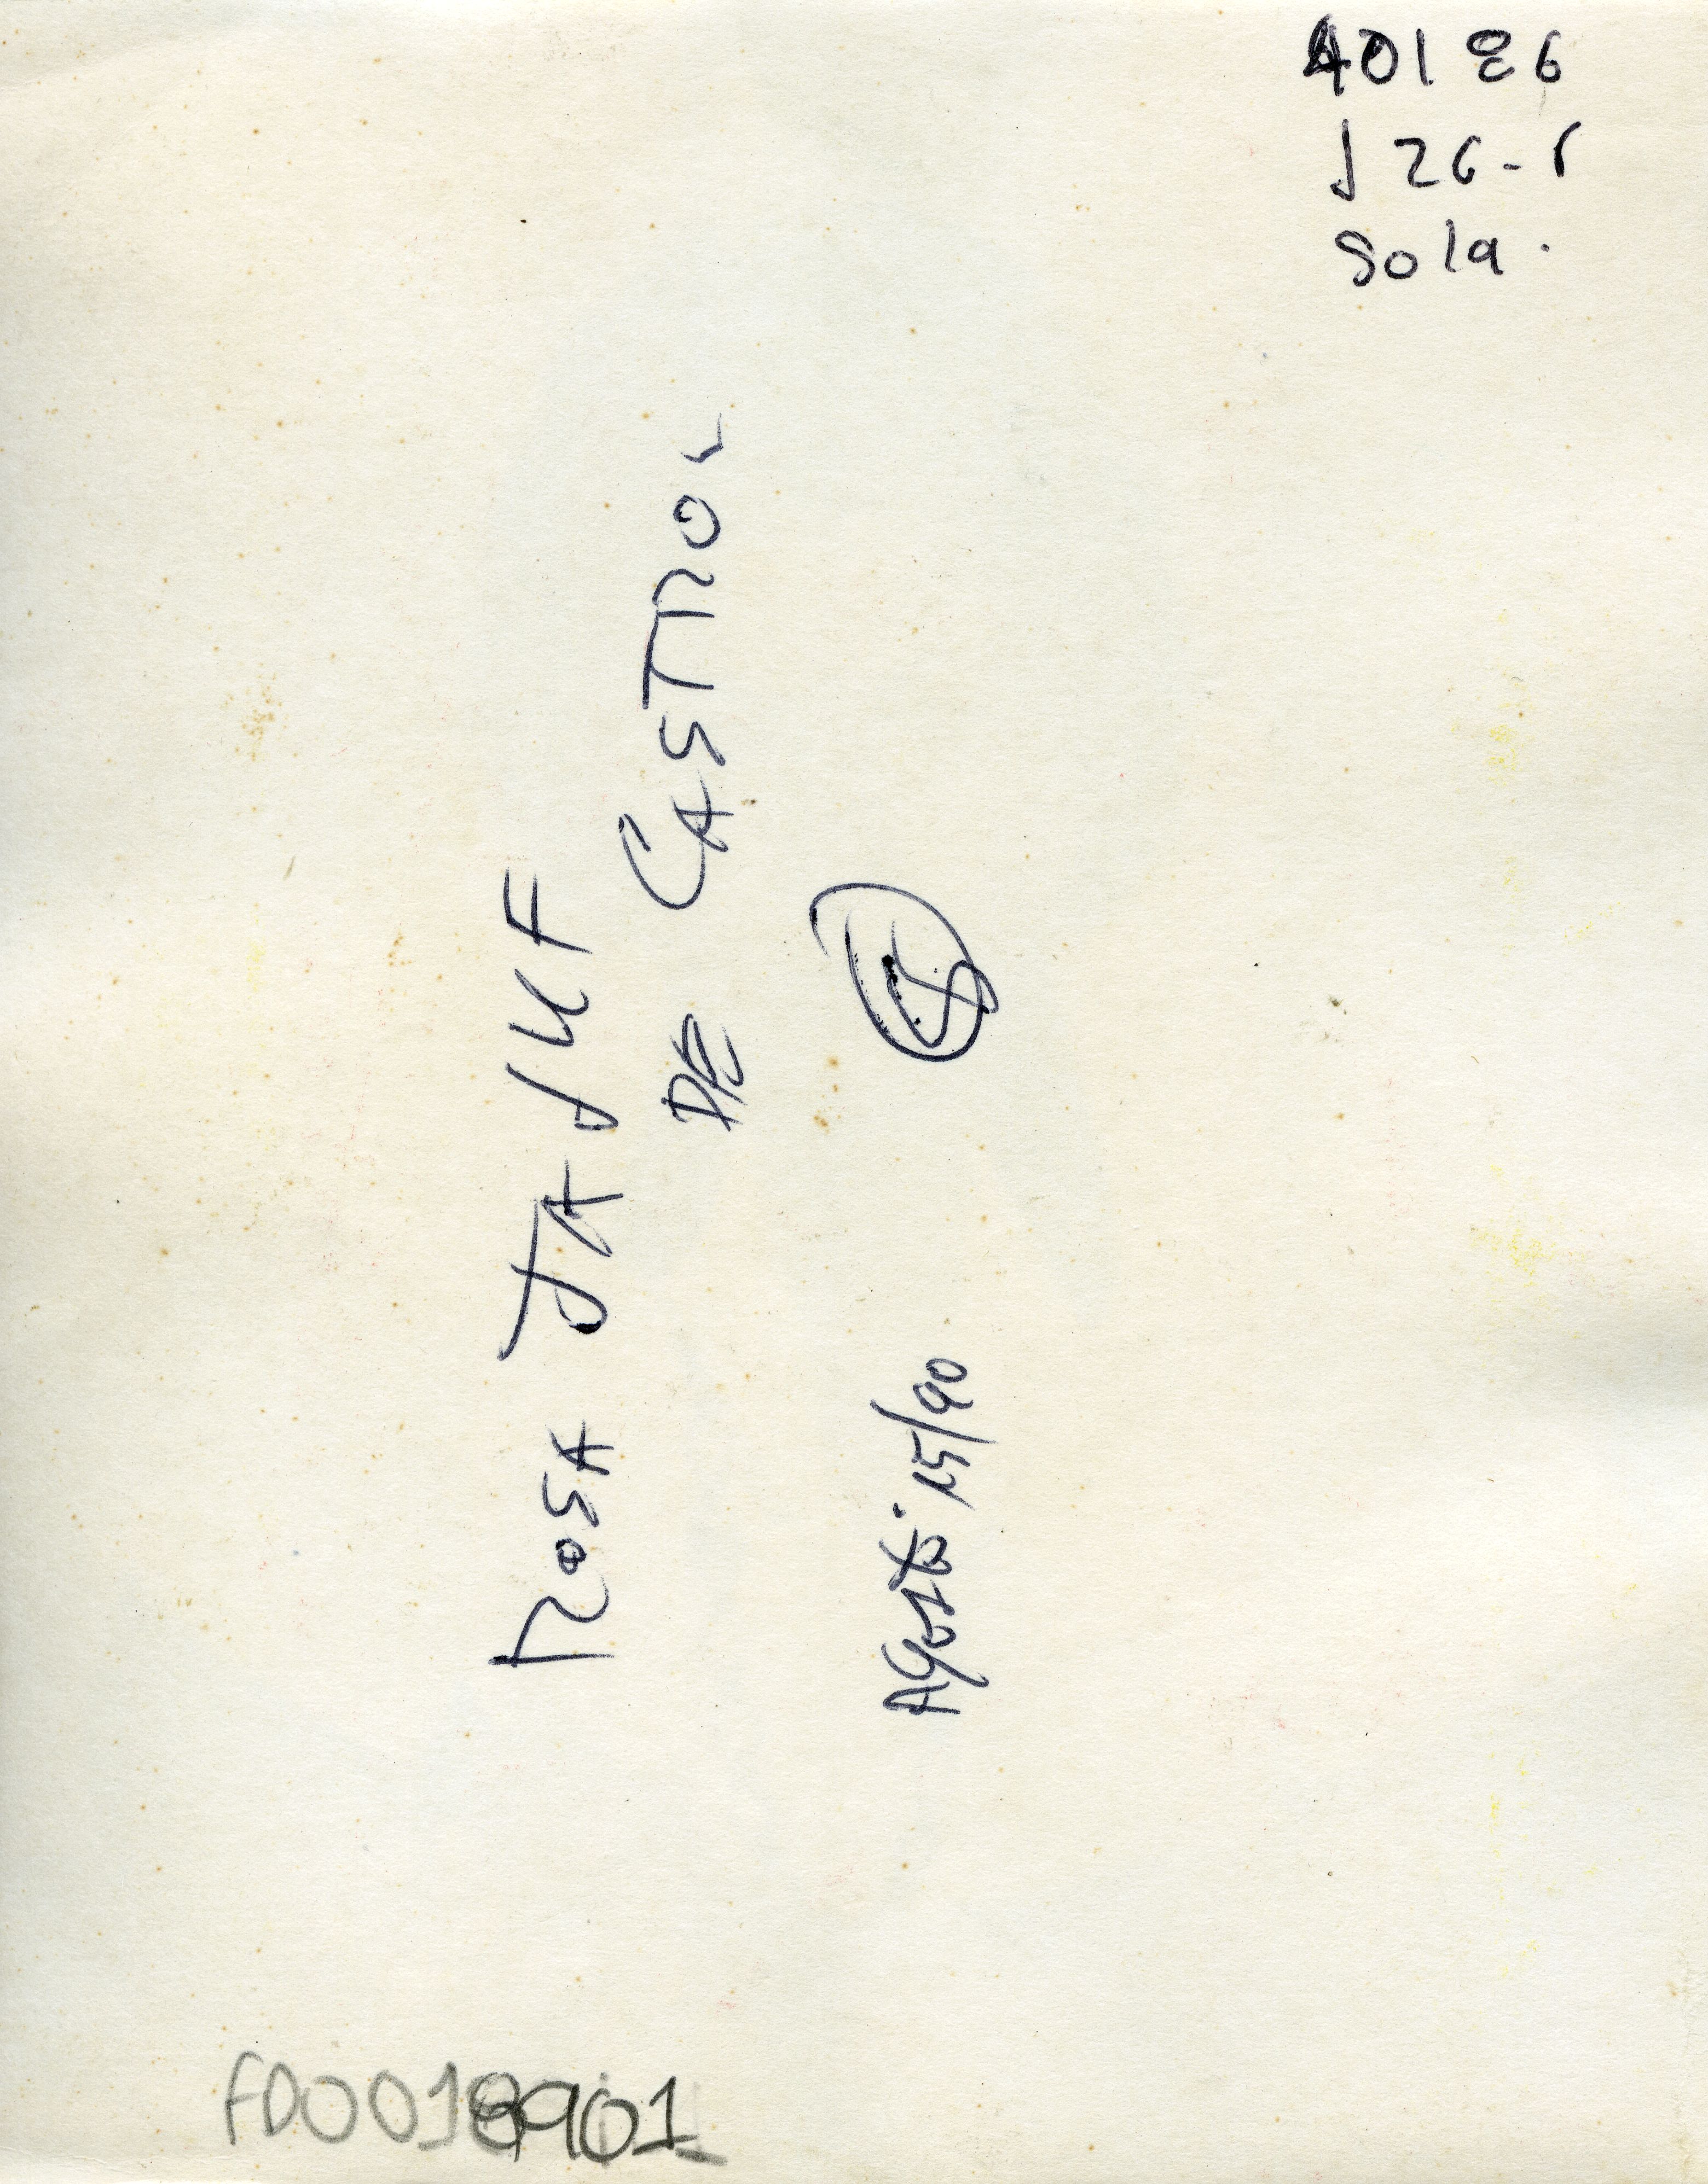 40186
J 26-1
Sola.
ROSA JAJUF
DE CASTRO
Agosto. 15/90
FD0018901